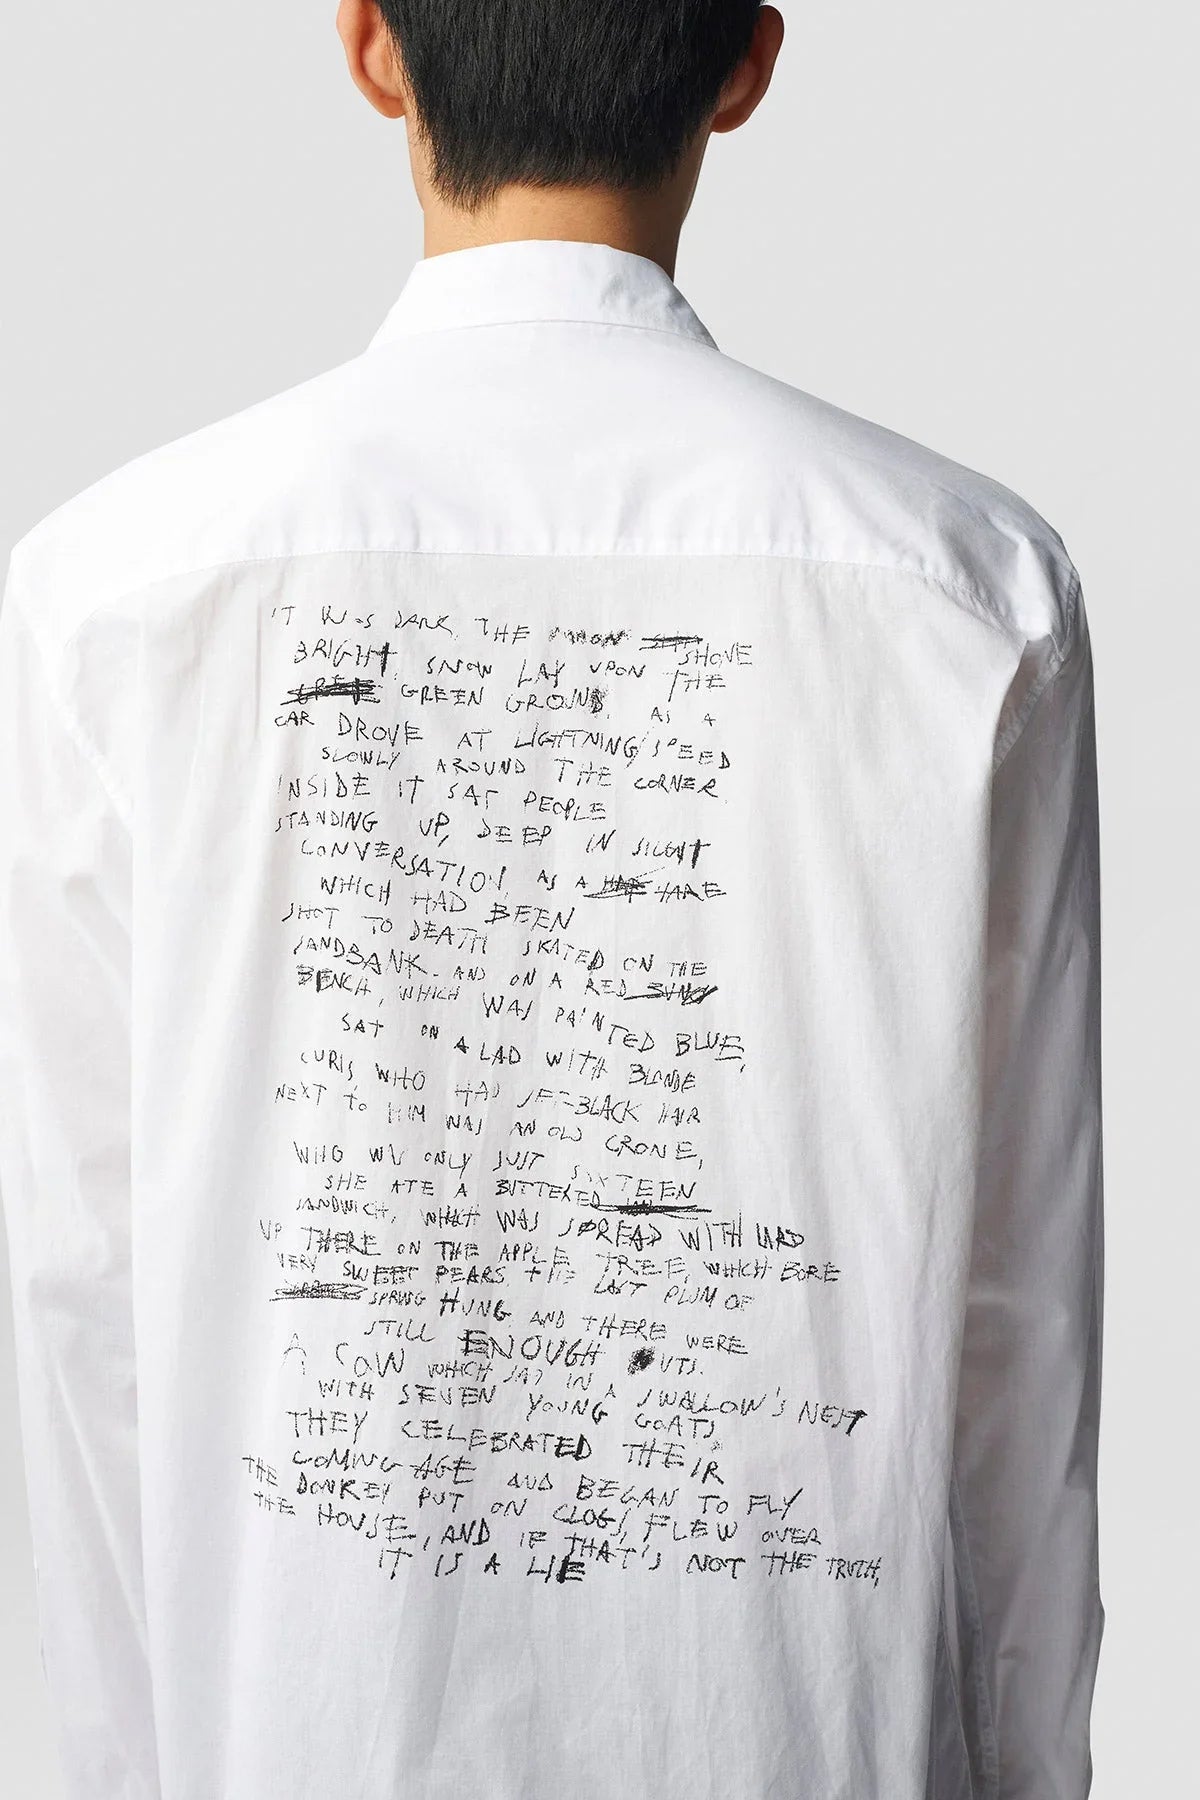 IT WAS DARK, THE MOON SHOVE
BRIGHT, SNOW LAY UPON THE
GREEN GROUND, AS A
CAR DROVE AT LIGHTNING SPEED
SLOWLY AROUND THE CORNER
INSIDE IT SAT PEOPLE
STANDING UP, DEEP IN SILENT
CONVERSATION, AS A HARE
WHICH HAD BEEN
SHOT TO DEATH SKATED ON THE
SANDBANK. AND ON A RED
BENCH, WHICH WAS PAINTED BLUE,
SAT ON A LAD WITH BLONDE
CURLS, WHO HAD JET-BLACK HAIR
NEXT TO HIM WAS AN OLD CRONE,
WHO WAS ONLY JUST SIXTEEN
SHE ATE A BUTTERED
SANDWICH, WHICH WAS SPREAD WITH LARD
UP THERE ON THE APPLE TREE, WHICH BORE
VERY SWEET PEARS, THE LAST PLUM OF
SPRING HUNG AND THERE WERE
STILL ENOUGH UTS.
A COW WHICH SAT IN A SWALLOW'S NEST
WITH SEVEN YOUNG GOATS
THEY CELEBRATED THEIR
COMING AGE AND BEGAN TO FLY
THE DONKEY PUT ON CLOGS, FLEW OVER
THE HOUSE, AND IF THAT'S NOT THE TRUTH,
IT IS A LIE